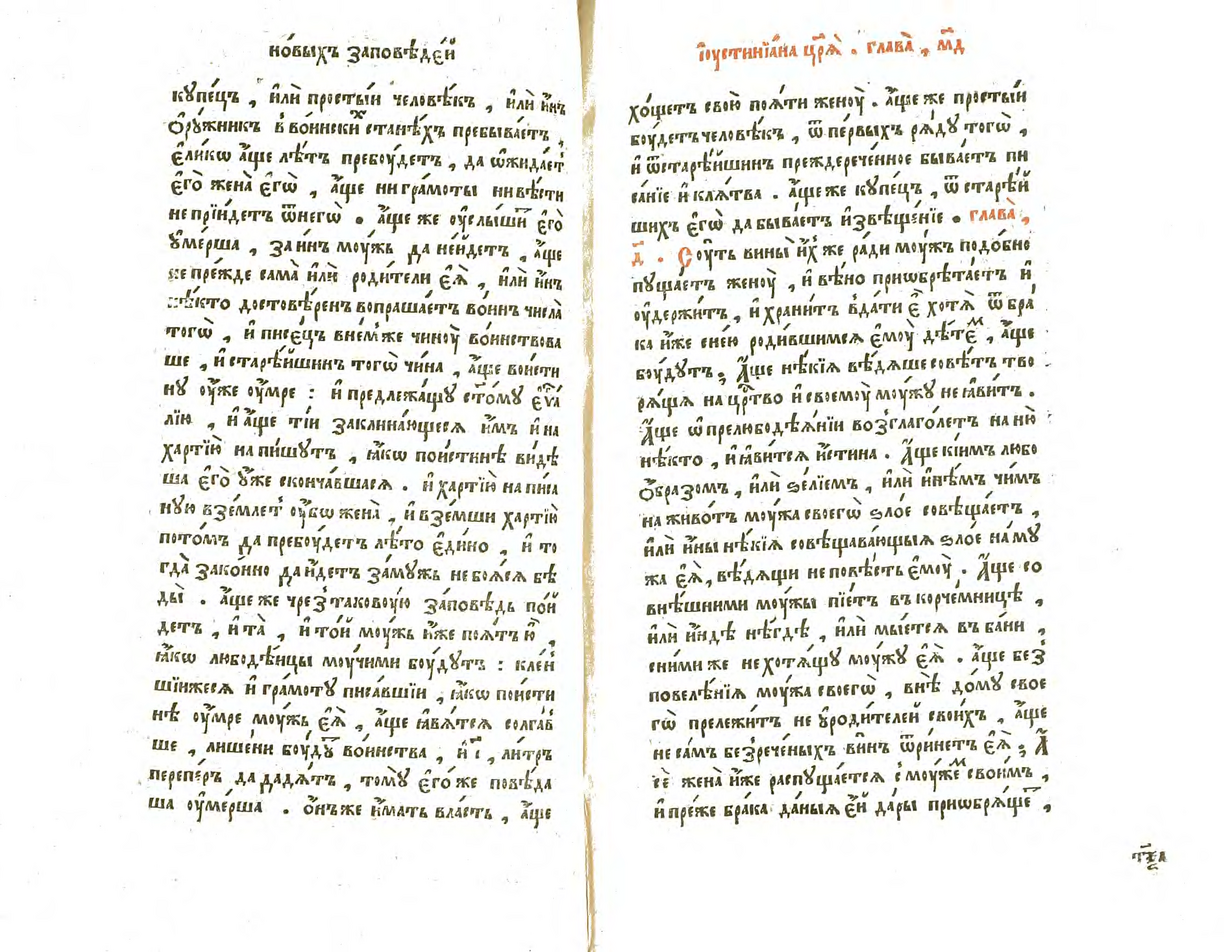 но́выхъ заповѣде́й
купе́цъ , и҆лѝ просты́и человѣ́къ , и҆лѝ и҆́нъ
Ѻ҆рꙋ́жникъ в̾во́ински ста́нѣхъ пребыва́етъ ,
є҆ли́кѡ а҆́ще лѣ́тъ пребꙋ́детъ , да ѡ҆жида́етъ
є҆го̀ жена̀ є҆гѡ̀ , а҆́ще ни гра́моты ни вѣ́сти
не прїи́детъ ѿнегѡ̀ . а҆́ще же ᲂу҆слы́ши є҆го̀
ᲂу҆ме́рша , за и҆́нъ мꙋ́жь да не́идетъ , а҆́ще
не пре́жде сама̀ и҆лѝ роди́тели є҆ѧ̀ , и҆лѝ и҆́нъ
нѣ́кто достовѣ́ренъ вопраша́етъ во́инъ числа̀
тогѡ̀ , и҆ писе́цъ в̾не́мже чи́нꙋ во́инствова
ше , и҆ старѣ́йшинъ тогѡ̀ чи́на , а҆́ще вои́сти
нꙋ ᲂу҆́же ᲂу҆́мре : и҆ предлежа́щꙋ ст҃о́мꙋ є҆ѵⷢ҇а́
лїю , и҆ а҆́ще ті́и заклина́ющесѧ и҆́мъ и҆ на
харті́ю напи́шꙋтъ , ꙗ҆́кѡ пои́стинѣ ви́дѣ
ша є҆го̀ ᲂу҆́же сконча́вшасѧ . и҆ харті́ю написа
нꙋю в̾зе́млетъ ᲂу҆́бѡ жена̀ , и҆ в̾зе́мши харті́ю
пото́мъ да пребꙋ́детъ лѣ́то є҆ди́но , и҆ то
гда̀ зако́нно да и҆́детъ за́мꙋжь не боѧ́сѧ бѣ
ды̀ . а҆́ще же чрез̾ таковꙋ́ю за́повѣдь по́и
детъ , и҆ та̀ , и҆ то́й мꙋ́жь и҆́же поѧ́тъ ю҆̀ ,
ꙗ҆́кѡ любодѣ́йцы мꙋ́чими бꙋ́дꙋтъ : кле́н
шїижесѧ и҆ гра́мотꙋ писа́вшїи , ꙗ҆́кѡ пои́сти
нѣ ᲂу҆́мре мꙋ́жь є҆ѧ̀ , а҆́ще ꙗ҆вѧ́тсѧ солга́в
ше , лише́ни бꙋ́дꙋⷮ во́инства , и҆ і҃ , ли́тръ
перепе́ръ да дадѧ́тъ , то́мꙋ є҆го́же повѣ́да
ша ᲂу҆ме́рша . О҆́нъ же и҆́мать вла́сть , а҆́ще
І҆ꙋстинїа́на цр҃ѧ̀ . глава̀ , м҃д
хо́щетъ свою̀ поѧ́ти женꙋ̀ . а҆́ще же просты́и
бꙋ́детъ человѣ́къ , ѿ пе́рвыхъ рѧ́дꙋ тогѡ̀ ,
и҆ ѿ старѣ́йшинъ преждерече́нное быва́етъ пи
са́нїе и҆ клѧ́тва . а҆́ще же купе́цъ , ѿ старѣ́й
шихъ є҆гѡ̀ да быва́етъ и҆звѣще́нїе . глава̀ ,
д҃ . Сꙋ́ть вины̀ и҆́хже ра́ди мꙋ́жъ подо́бно
пꙋща́етъ женꙋ̀ , и҆ вѣ́но приѡбрѣта́етъ и҆
ᲂу҆держи́тъ , и҆ храни́тъ в̾да́ти є҆̀ хотѧ̀ ѿ бра́
ка и҆́же с̾не́ю роди́вшимсѧ є҆мꙋ̀ дѣ́теⷨ , а҆́ще
бꙋ́дꙋтъ ; А҆́ще нѣ́кїѧ вѣ́дѧше совѣ́тъ тво
рѧ́щѧ на црⷭ҇тво и҆ своемꙋ̀ мꙋ́жꙋ не ꙗ҆ви́тъ .
А҆́ще ѡ҆ прелюбодѣѧ́нїи воз̾глаго́летъ на ню̀
нѣ́кто , и҆ ꙗ҆ви́тсѧ и҆́стина . А҆́ще кі́имъ любо
Ѻ҆́бразомъ , и҆лѝ ѕе́лїемъ , и҆лѝ и҆нѣ́мъ чи́мъ
на живо́тъ мꙋ́жа своегѡ̀ ѕло́е совѣща́етъ ,
и҆лѝ и҆́ны нѣ́кїѧ совѣщава́ющыѧ ѕло́е на мꙋ́
жа є҆ѧ̀ , вѣ́дѧщи не повѣ́сть є҆мꙋ̀ . А҆́ще со
внѣ́шними мꙋ́жы пїе́тъ в̾ корче́мницѣ ,
и҆лѝ и҆́ндѣ нѣ́гдѣ , и҆лѝ мы́етсѧ въ ба́ни ,
сни́ми же не хотѧ́щꙋ мꙋ́жꙋ є҆ѧ̀ . а҆́ще без̾
повелѣ́нїѧ мꙋ́жа своегѡ̀ , внѣ̀ до́мꙋ свое
гѡ̀ прележи́тъ не ᲂу҆ роди́телей свои́хъ , а҆́ще
не са́мъ без̾рече́ныхъ ви́нъ ѿри́нетъ є҆ѧ̀ ; А҆́
сѐ жена̀ и҆́же распꙋща́етсѧ с̾ мꙋ́жеⷨ свои́мъ ,
и҆ пре́же бра́ка да́ныѧ є҆́й да́ры приѡбрѧ́щеⷮ ,